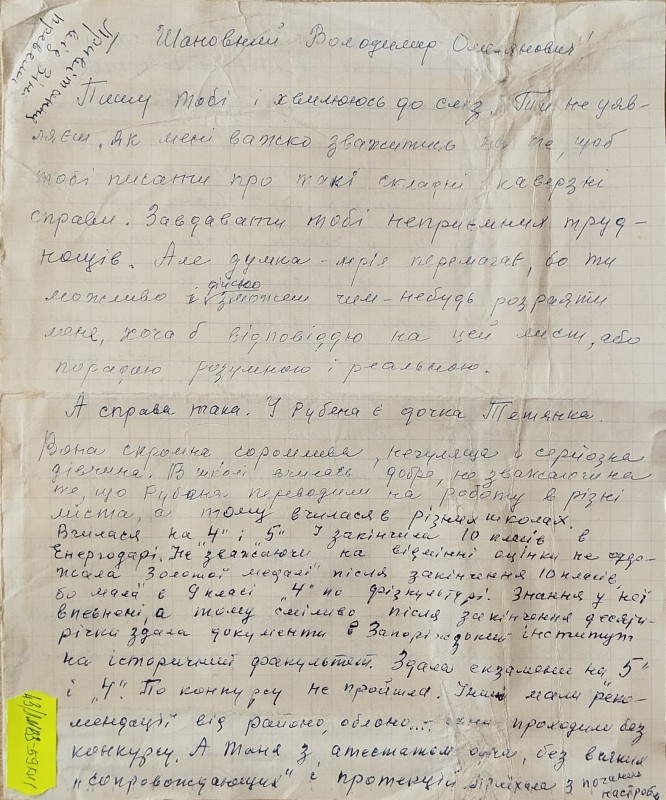 Шановний Володимир Омелянович!
Привітання
від Зни
Пишу тобі і хвилююсь до сліз. Ти не уяв-
ляєш, як мені важко зважитись на те, щоб
тобі писати про такі складні каверзні
справи. Завдавати тобі неприємних труд-
нощів. Але думка-мрія перемагає, бо ти
можливо і дійсно зможеш чим-небудь розраяти
мене, хоча б відповіддю на цей лист, або
порадою розумною і реальною.
А справа така. У Рубена є дочка Тетянка.
Вона скромна соромлива, негуляща і серйозна
дівчина. В школі вчилась добре, не зважаючи на
те, що Рубена переводили на роботу в різні
міста, а тому вчилася в різних школах.
Вчилася на "4" і "5" І закінчила 10 класів в
Енергодарі. Не зважаючи на відмінні оцінки не одер-
жала "Золотої медалі" після закінчення 10 класів,
бо мала в 9 класі "4" по фізкультурі. Знання у неї
впевнені, а тому сміливо після закінчення десяти-
річки здала документи в Запоріжський інститут
на історичний факультет. Здала екзамени на "5"
і "4". По конкурсу не пройшла. Інші мали реко-
мендації від районо, облоно... проходили без
конкурсу. А Таня з атестатом одна, без всяких
"сопровождающих" і протекцій приїхала з поганим
настроєм